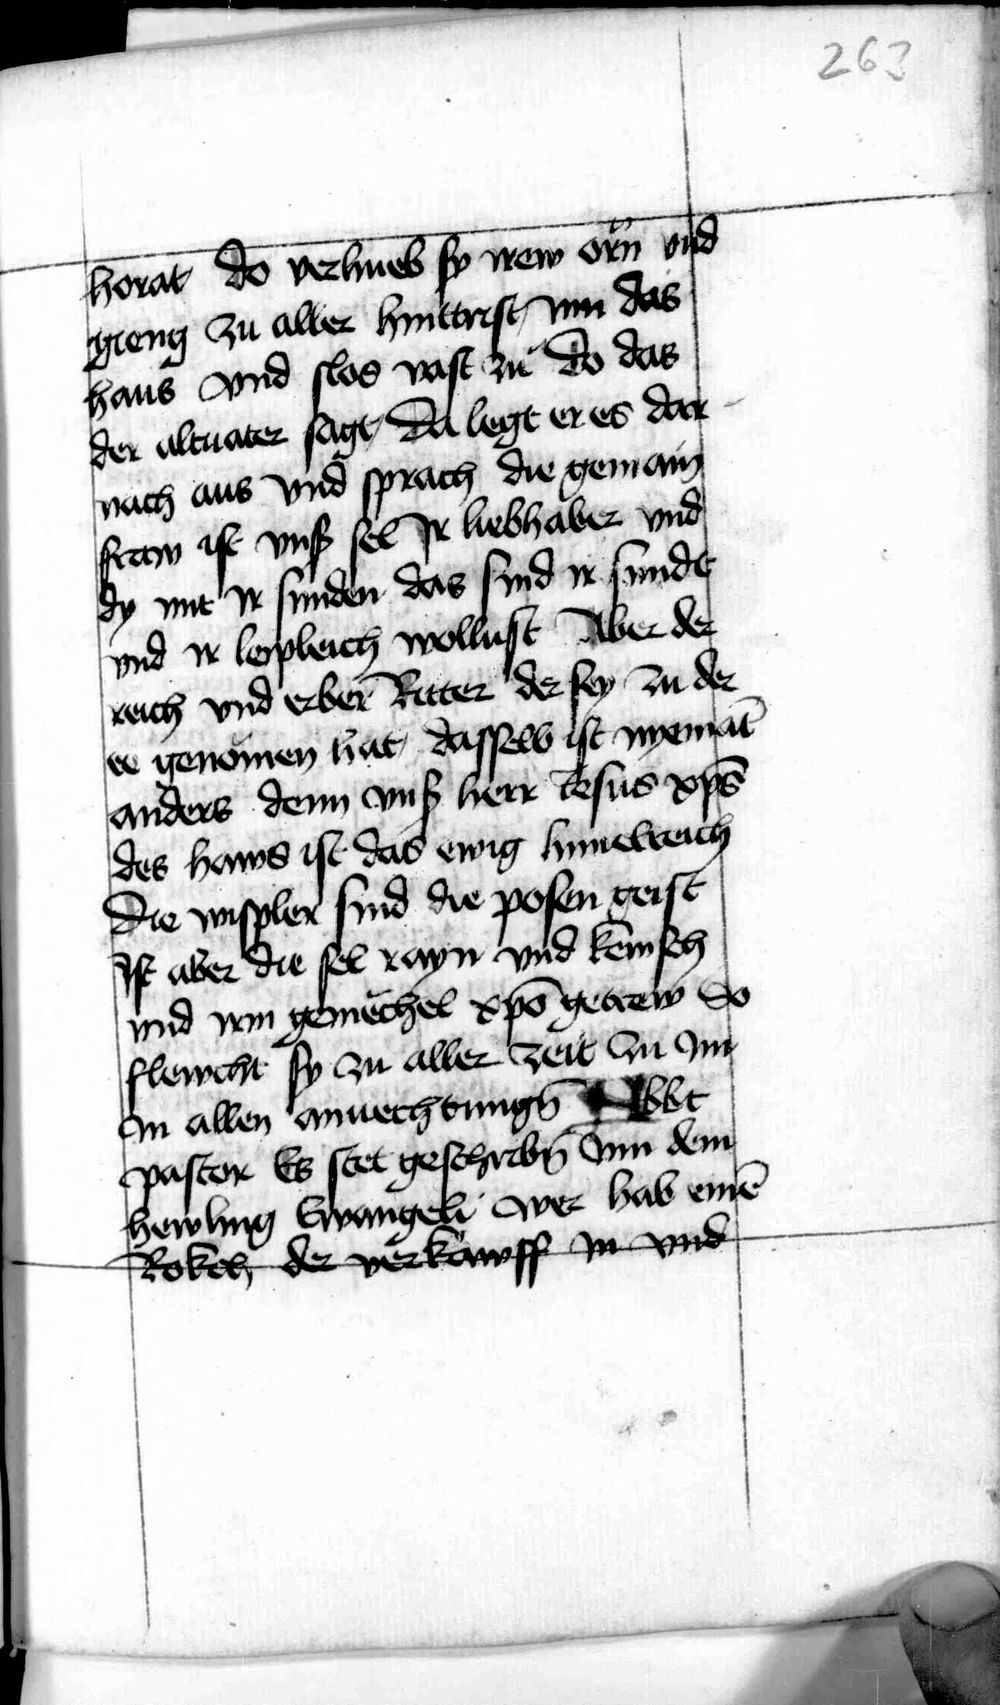 263
horat do verhueb sy irew orn̄ vnd
gieng zu aller hintterist inn das
haus vnd slos vast zu Do das
der altuater sagt Da legt er es dar
nach aus vnd sprach die gemain
fraw ist vnſß sel Ir liebhaber vnd
dy mit ir sunden das sind ir sunde
vnd ir leipleich wollust Aber der
reich vnd erber Ritter der sey zu der
ee genomen hat dasselb ist nyemāt
anders denn vnß herr Jesus xp̄s
des haws ist das ewig himelreich
Die wispler sind die posen geist
Ist aber die sel rayn vnd kewsch
vnd irm gemechel xpō getrew So
flewcht sy zu aller zeit zu im
in allen anuechtungn̄ Abbt
pastor Es stet geschribn̄ inn dem
heyling Ewangeli wer hab einē
Rokch der verkawff in vnd